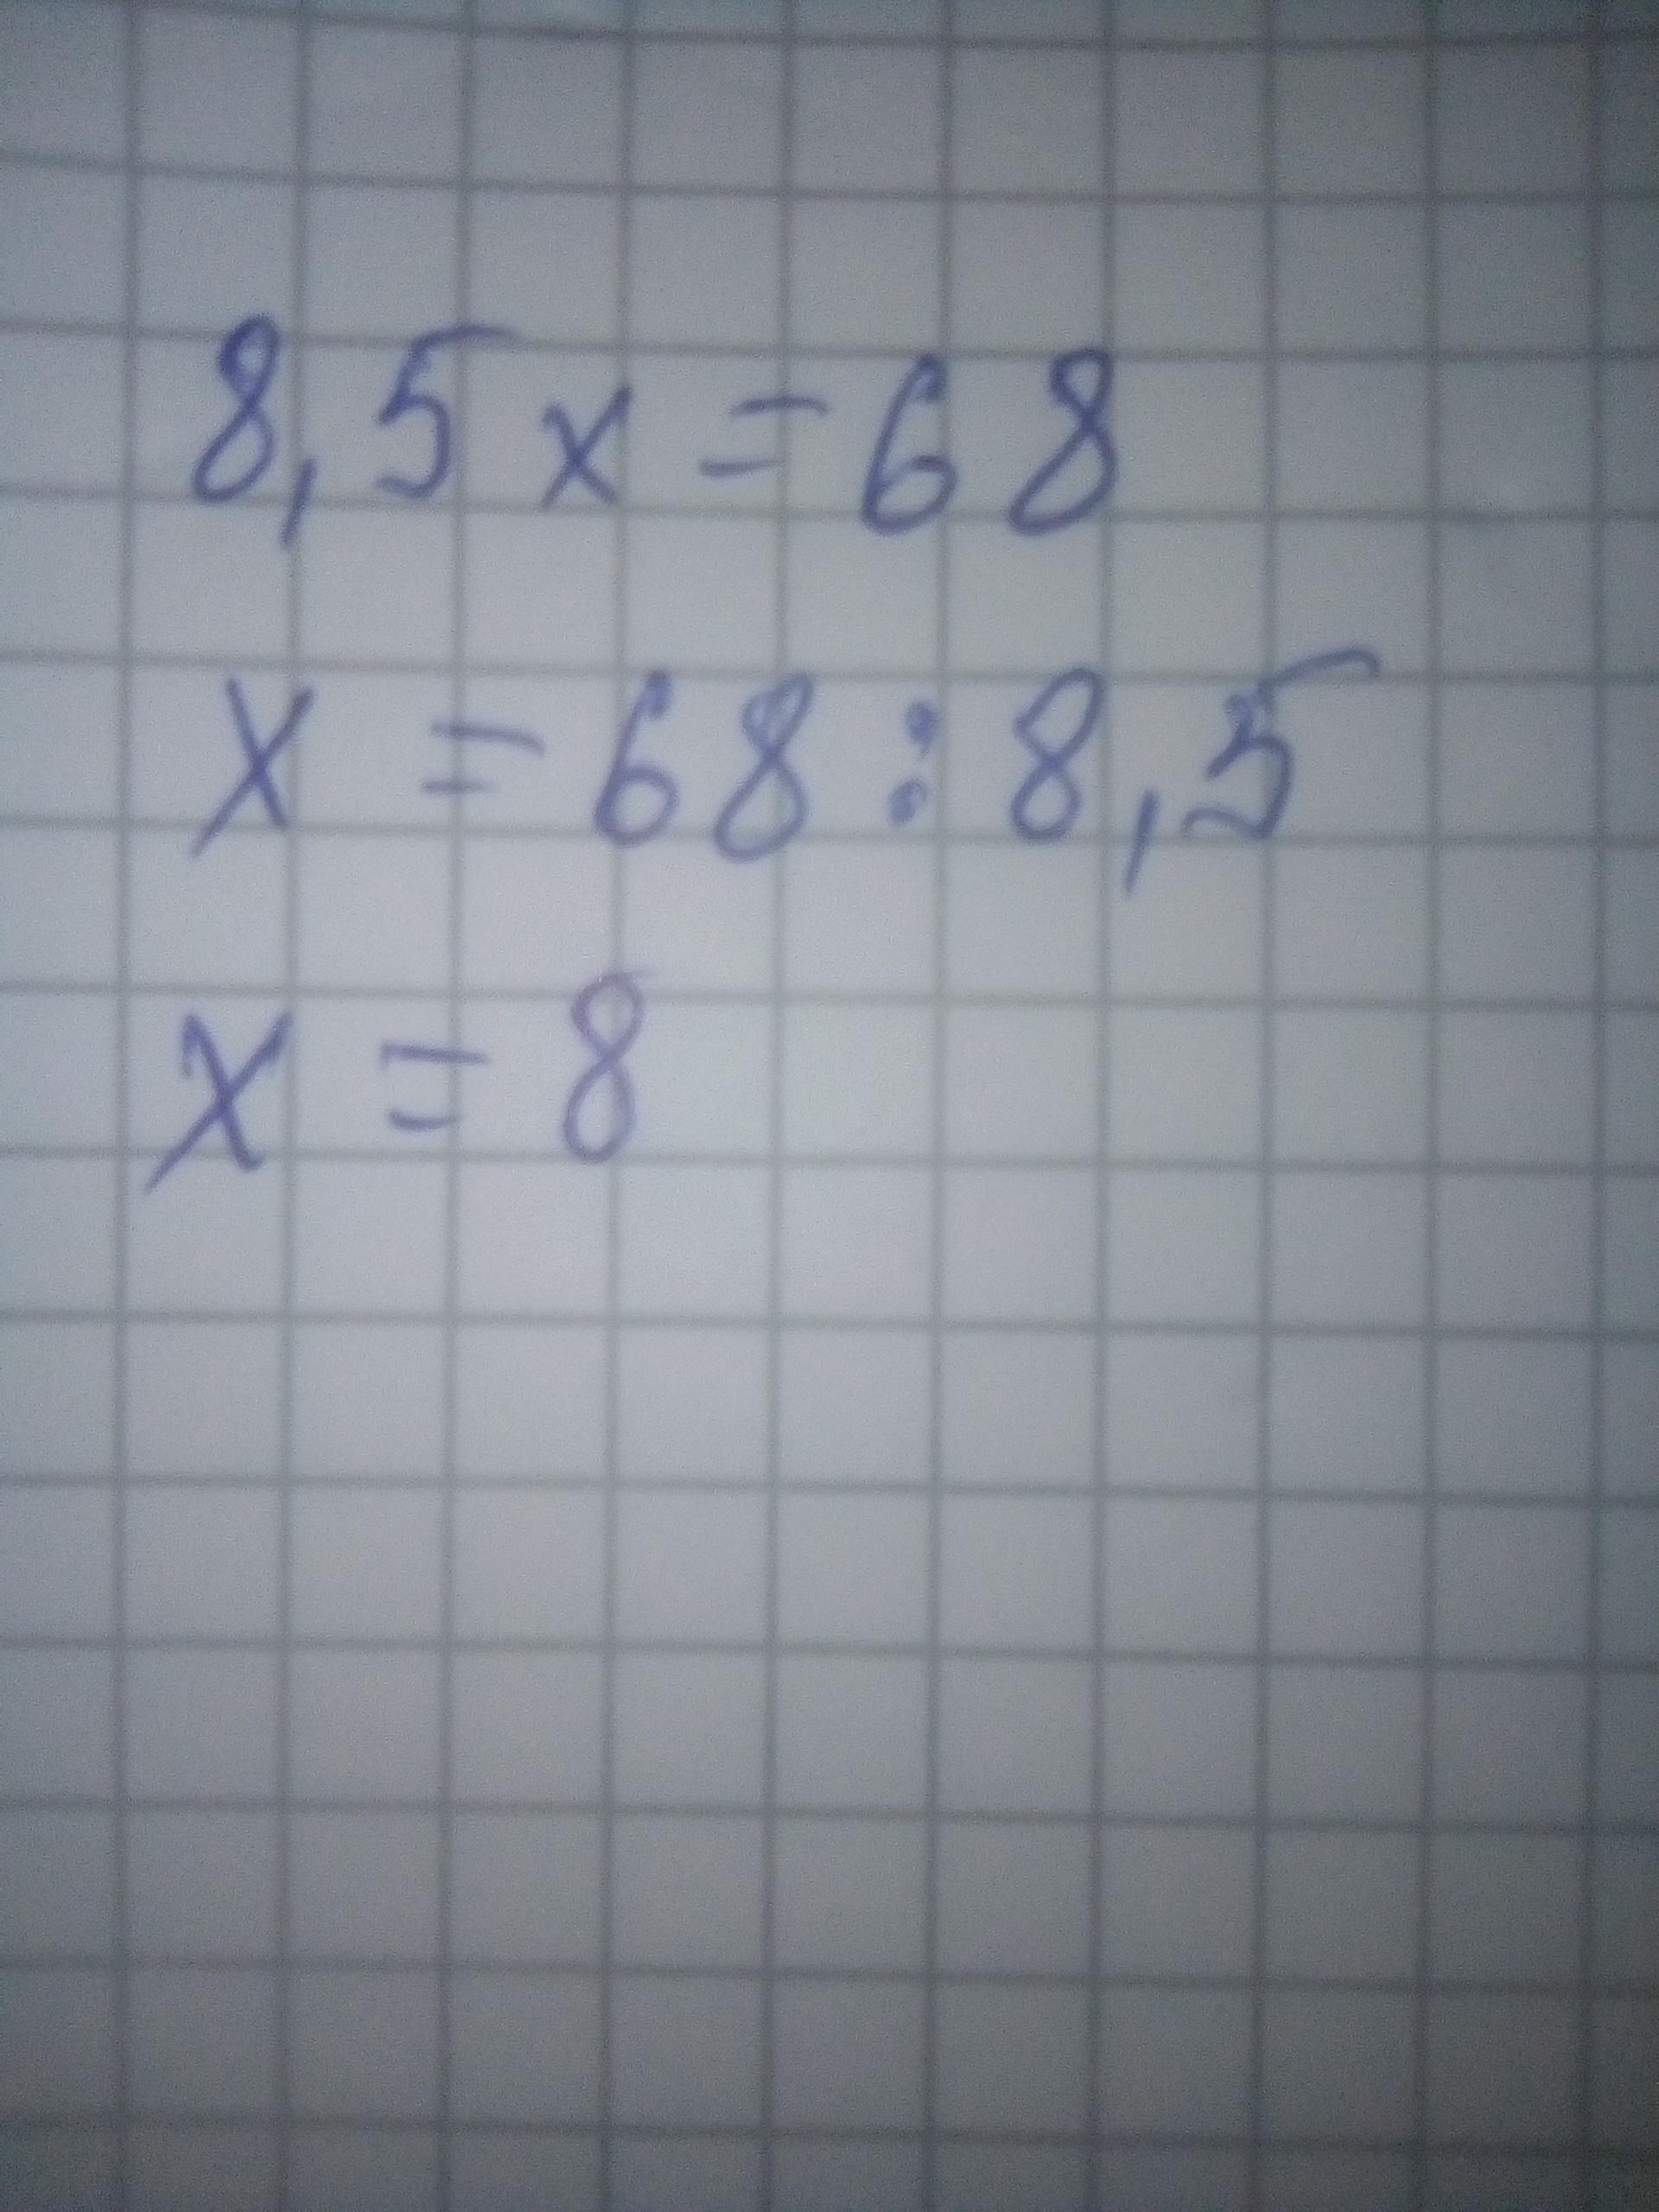 8,5x=68
x=68:8,5
x=8